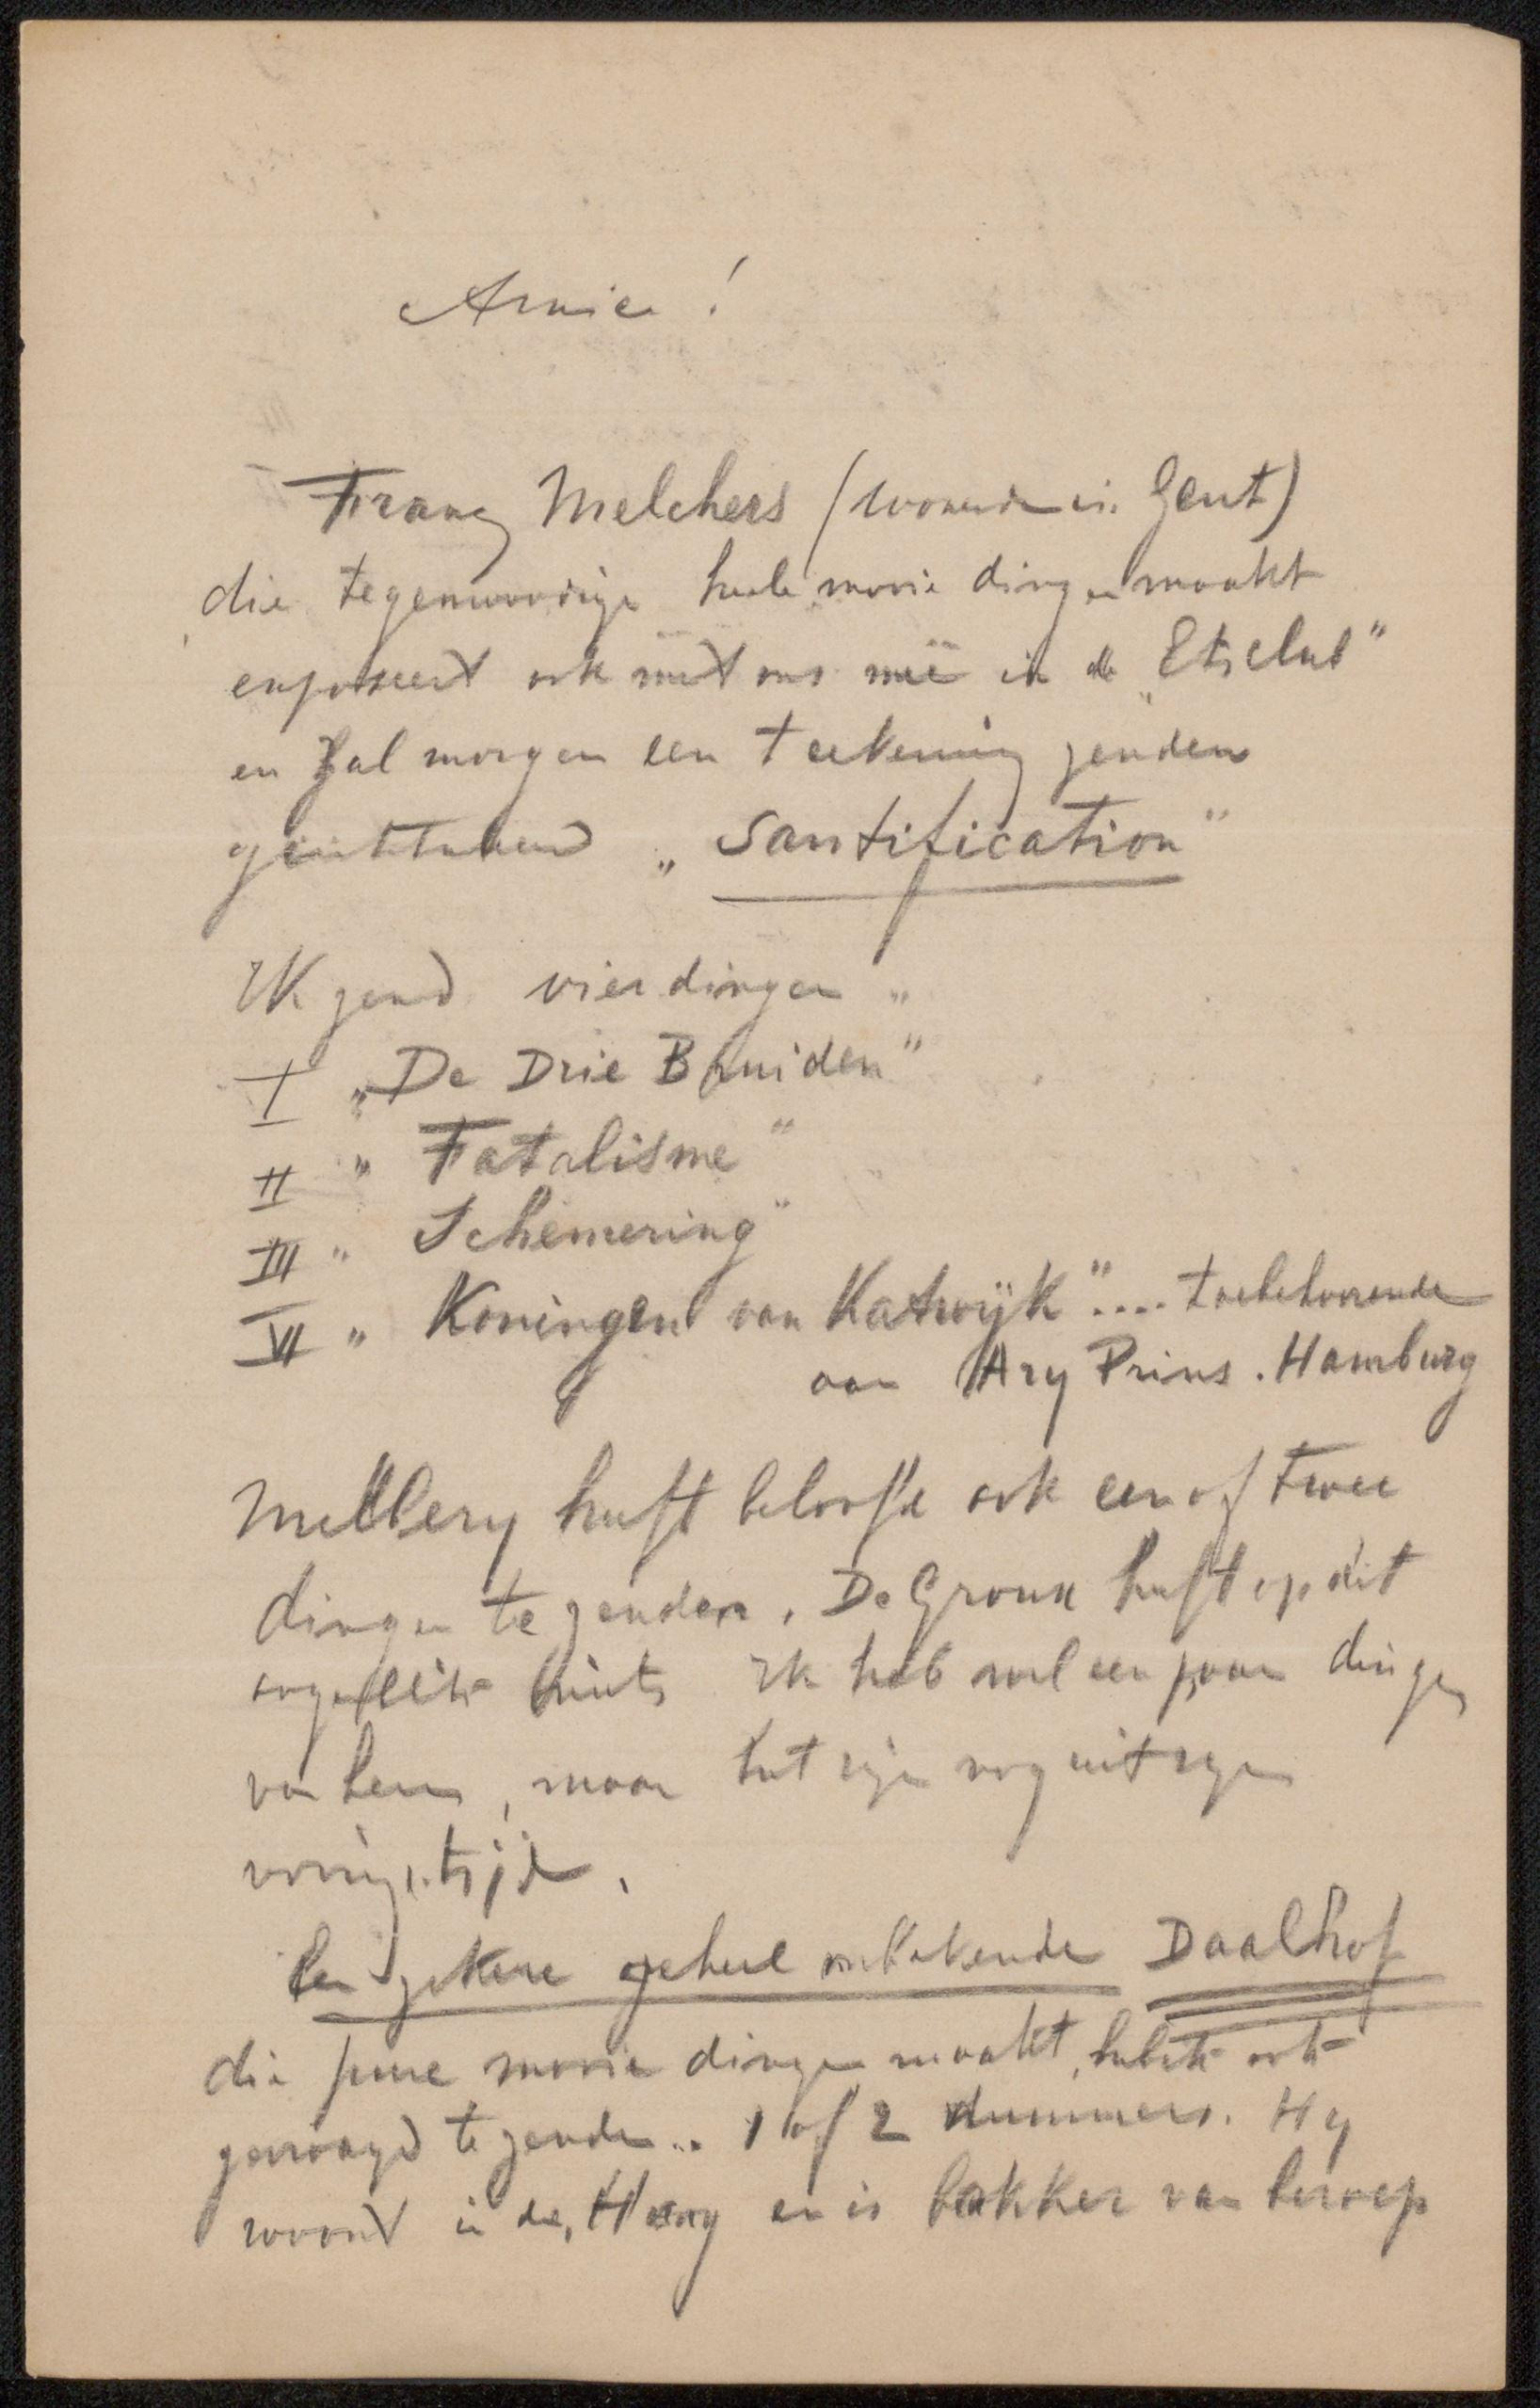 Amice!
Franz Melchers (wonende in Gent)
die tegenwoordige heele mooie dingen maakt
exposeert ook met ons meê in de „Etsclub"
en zal morgen een teekening zenden
geintituleerd „Santification"
Ik zend vier dingen „
I „De Drie Bruiden"
II „Fatalisme"
III „Schemering"
VI „Koningen van Katwijk".... toebehoorende
aan Ary Prins. Hamburg
Mellery heeft beloofd ook een of twee
dingen te zenden. De Groux heeft op dit
oogenblik niets Ik heb wel een paar dingen
van hem, maar het zijn nog uit zijn
vroegen tijd.
Een zekere geheel onbekende Daalhof
die zeer mooie dingen maakt, heb ik ook
gevraagd te zenden.. 1 of 2 nummers. Hy
woont in den Haag en is bakker van beroep